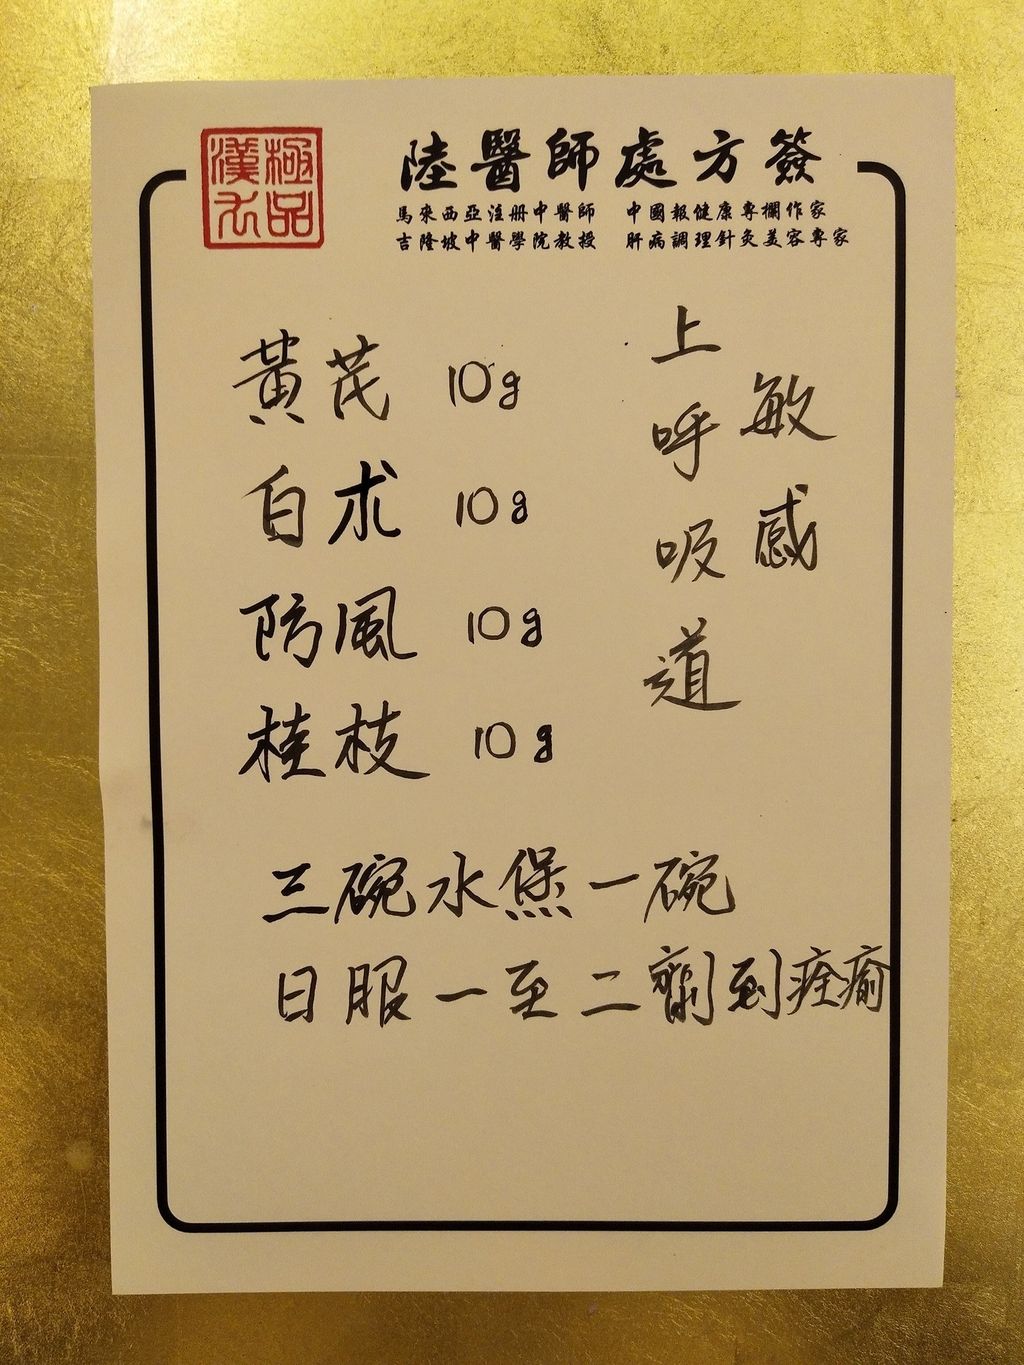 極品
漢方
陸醫師處方簽
馬來西亞注册中醫師 中國報健康專欄作家
吉隆坡中醫學院教授 肝病調理針灸美容專家
敏感
上呼吸道
黃茂 10g
白朮 10g
防風 10g
桂枝 10g
三碗水煲一碗
日服一至二劑到痊癒